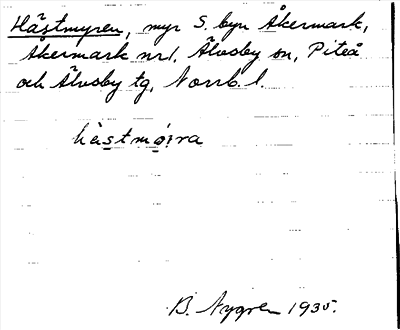 Hästmyren, myr S. byn Åkermark,
Åkermark nr 1, Älvsby sn, Piteå
och Älvsby tg, Norrb. l.
hästmöȷra
B. Nygren 1935.